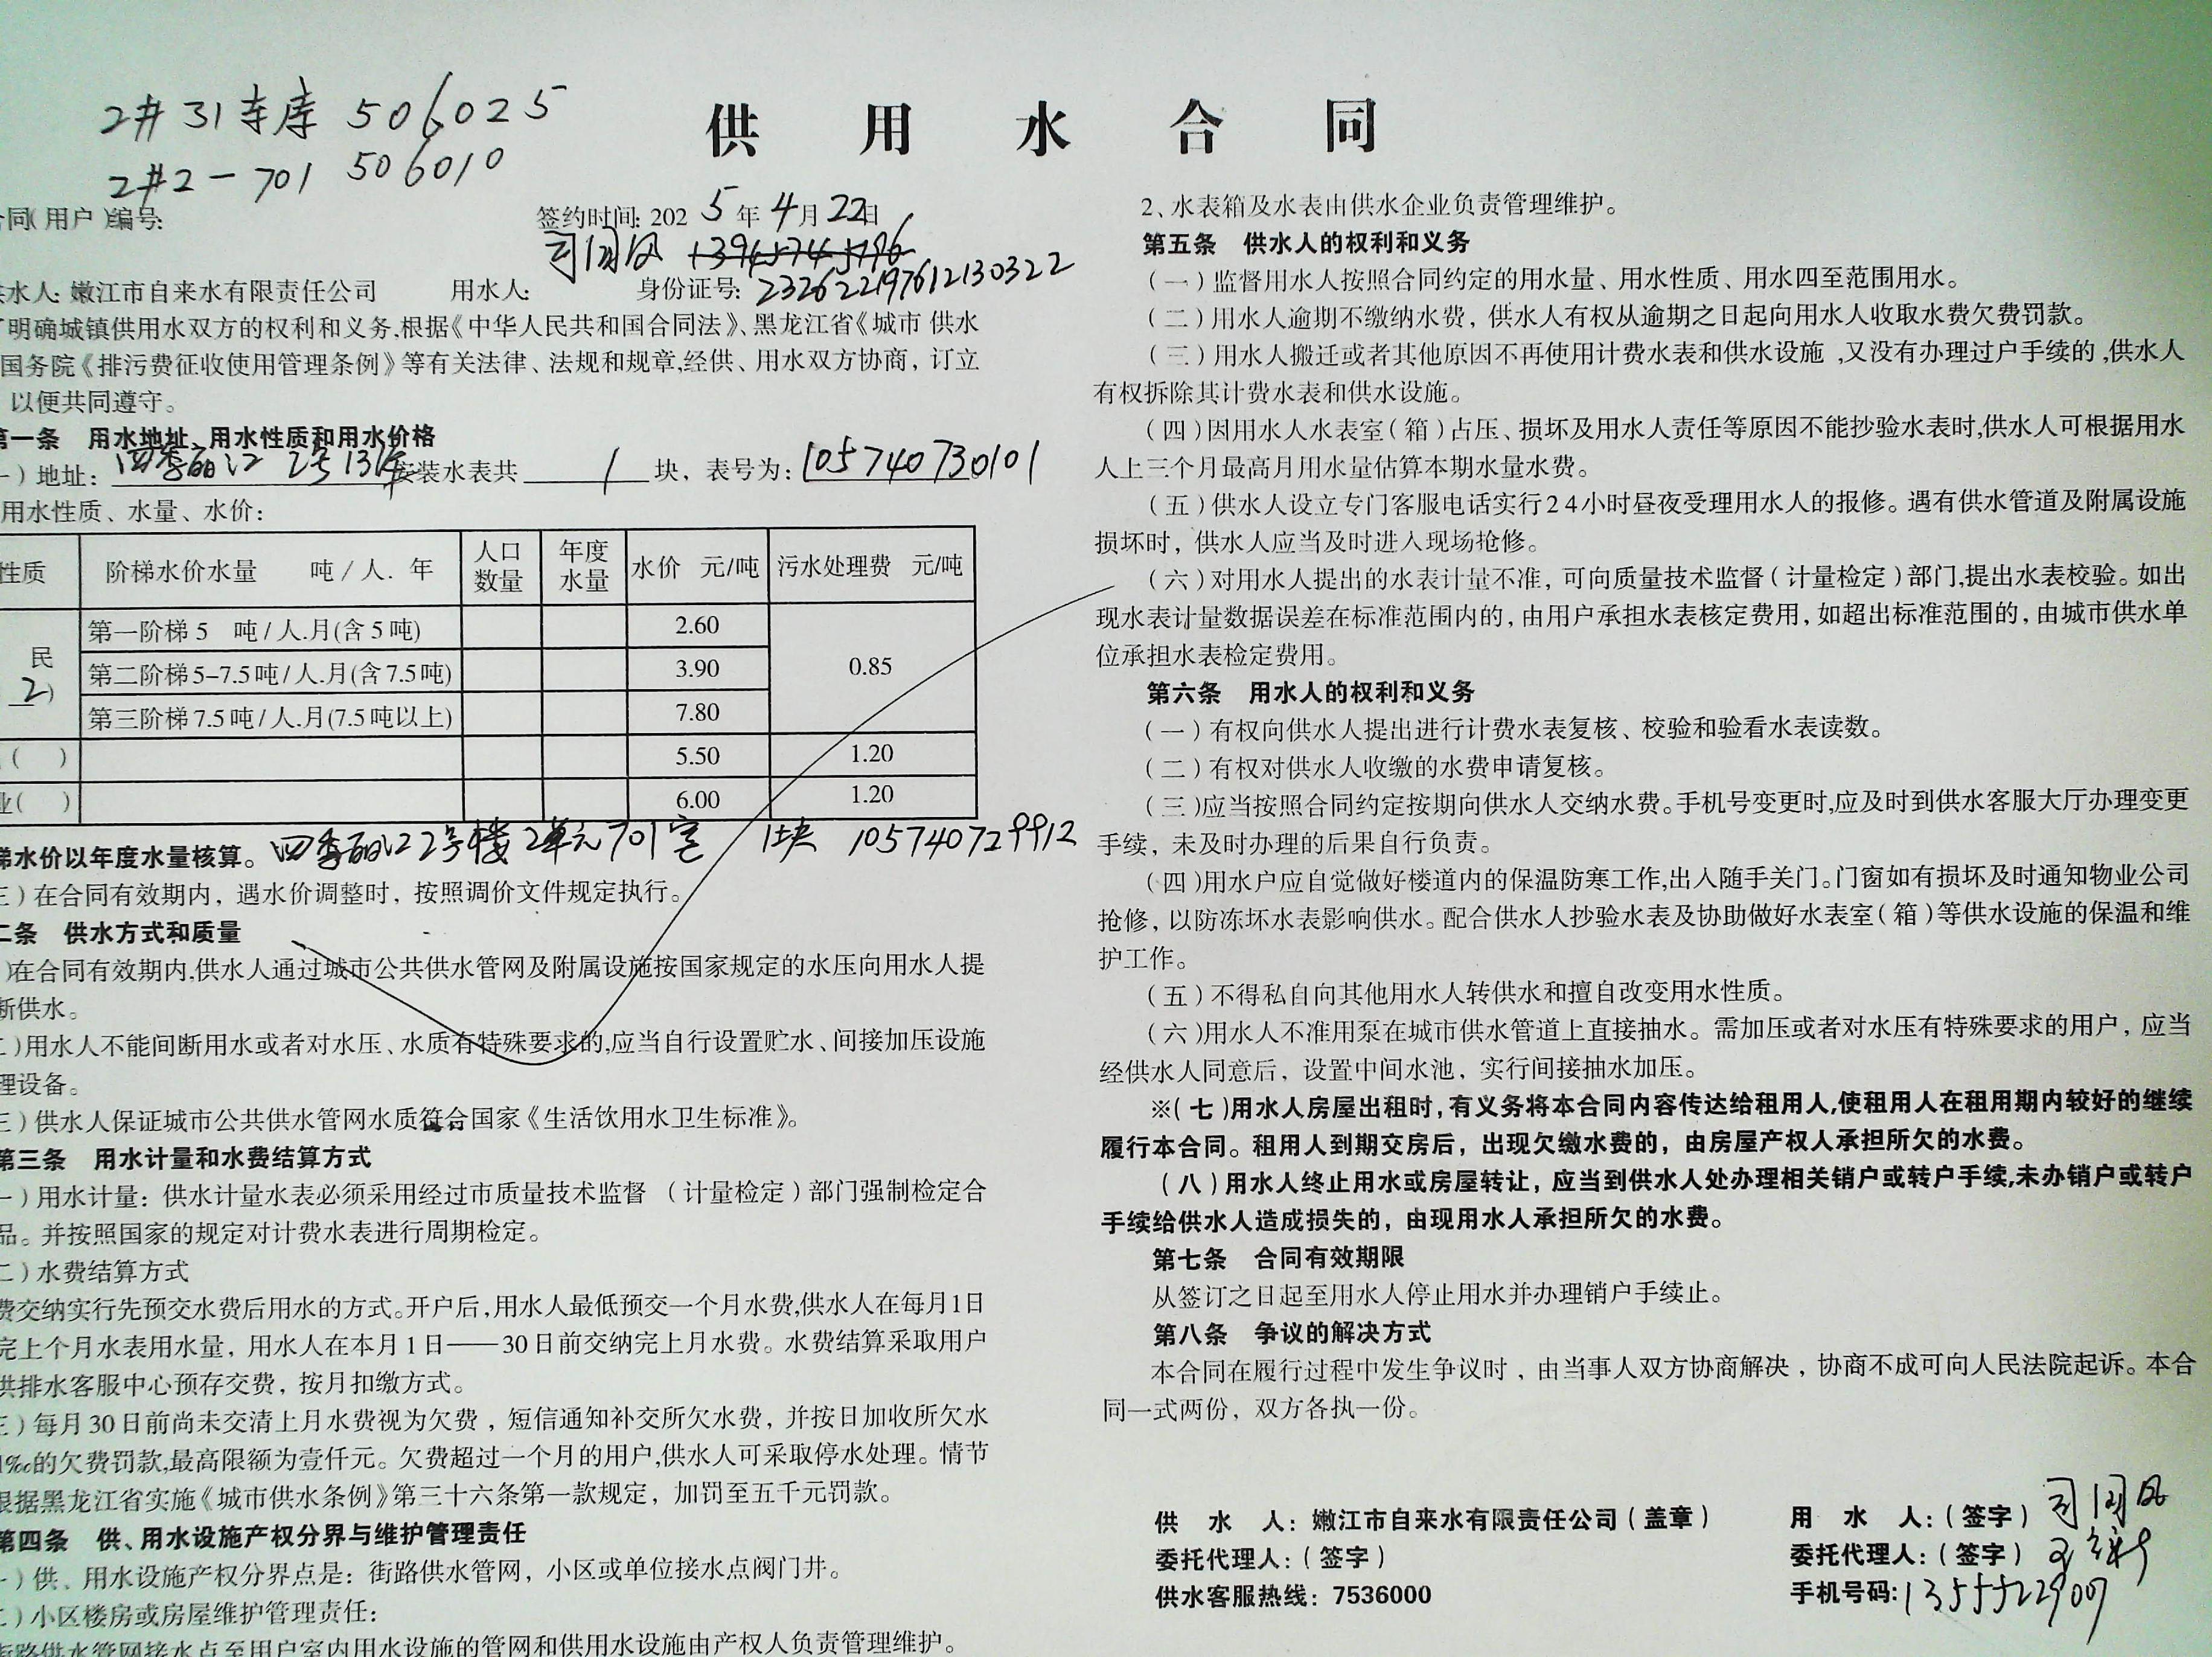 2#31车库 506025
2#2-701 506010
供用水合同
同(用户)编号:
签约时间:2025年4月22日
司国风 13945745196
水人:嫩江市自来水有限责任公司 用水人: 身份证号:232622197612130322
明确城镇供用水双方的权利和义务,根据《中华人民共和国合同法》、黑龙江省《城市 供水
国务院《排污费征收使用管理条例》等有关法律、法规和规章,经供、用水双方协商,订立
以便共同遵守。
第一条 用水地址、用水性质和用水价格
一)地址:四季丽江 2号13车安装水表共1块,表号为:105740730101
用水性质、水量、水价:
性质 阶梯水价水量 吨/人.年 人口数量 年度水量 水价 元/吨 污水处理费 元/吨
民 2) 第一阶梯5 吨/人.月(含5吨) 2.60 0.85
第二阶梯5-7.5吨/人.月(含7.5吨) 3.90
第三阶梯7.5吨/人.月(7.5吨以上) 7.80
( ) 5.50 1.20
业( ) 6.00 1.20
梯水价以年度水量核算。四季丽江2号楼2单元701室 1块 105740729912
三)在合同有效期内,遇水价调整时,按照调价文件规定执行。
二条 供水方式和质量
)在合同有效期内,供水人通过城市公共供水管网及附属设施按国家规定的水压向用水人提
断供水。
二)用水人不能间断用水或者对水压、水质有特殊要求的,应当自行设置贮水、间接加压设施
理设备。
三)供水人保证城市公共供水管网水质符合国家《生活饮用水卫生标准》。
第三条 用水计量和水费结算方式
一)用水计量:供水计量水表必须采用经过市质量技术监督 (计量检定)部门强制检定合
品。并按照国家的规定对计费水表进行周期检定。
二)水费结算方式
费交纳实行先预交水费后用水的方式。开户后,用水人最低预交一个月水费,供水人在每月1日
完上个月水表用水量,用水人在本月1日——30日前交纳完上月水费。水费结算采取用户
供排水客服中心预存交费,按月扣缴方式。
三)每月30日前尚未交清上月水费视为欠费,短信通知补交所欠水费,并按日加收所欠水
1‰的欠费罚款,最高限额为壹仟元。欠费超过一个月的用户,供水人可采取停水处理。情节
根据黑龙江省实施《城市供水条例》第三十六条第一款规定,加罚至五千元罚款。
第四条 供、用水设施产权分界与维护管理责任
一)供、用水设施产权分界点是:街路供水管网,小区或单位接水点阀门井。
二)小区楼房或房屋维护管理责任:
街路供水管网接水点至用户室内用水设施的管网和供用水设施由产权人负责管理维护。
2、水表箱及水表由供水企业负责管理维护。
第五条 供水人的权利和义务
(一)监督用水人按照合同约定的用水量、用水性质、用水四至范围用水。
(二)用水人逾期不缴纳水费,供水人有权从逾期之日起向用水人收取水费欠费罚款。
(三)用水人搬迁或者其他原因不再使用计费水表和供水设施,又没有办理过户手续的,供水人
有权拆除其计费水表和供水设施。
(四)因用水人水表室(箱)占压、损坏及用水人责任等原因不能抄验水表时,供水人可根据用水
人上三个月最高月用水量估算本期水量水费。
(五)供水人设立专门客服电话实行24小时昼夜受理用水人的报修。遇有供水管道及附属设施
损坏时,供水人应当及时进入现场抢修。
(六)对用水人提出的水表计量不准,可向质量技术监督(计量检定)部门,提出水表校验。如出
现水表计量数据误差在标准范围内的,由用户承担水表核定费用,如超出标准范围的,由城市供水单
位承担水表检定费用。
第六条 用水人的权利和义务
(一)有权向供水人提出进行计费水表复核、校验和验看水表读数。
(二)有权对供水人收缴的水费申请复核。
(三)应当按照合同约定按期向供水人交纳水费。手机号变更时,应及时到供水客服大厅办理变更
手续,未及时办理的后果自行负责。
(四)用水户应自觉做好楼道内的保温防寒工作,出入随手关门。门窗如有损坏及时通知物业公司
抢修,以防冻坏水表影响供水。配合供水人抄验水表及协助做好水表室(箱)等供水设施的保温和维
护工作。
(五)不得私自向其他用水人转供水和擅自改变用水性质。
(六)用水人不准用泵在城市供水管道上直接抽水。需加压或者对水压有特殊要求的用户,应当
经供水人同意后,设置中间水池,实行间接抽水加压。
※(七)用水人房屋出租时,有义务将本合同内容传达给租用人,使租用人在租用期内较好的继续
履行本合同。租用人到期交房后,出现欠缴水费的,由房屋产权人承担所欠的水费。
(八)用水人终止用水或房屋转让,应当到供水人处办理相关销户或转户手续,未办销户或转户
手续给供水人造成损失的,由现用水人承担所欠的水费。
第七条 合同有效期限
从签订之日起至用水人停止用水并办理销户手续止。
第八条 争议的解决方式
本合同在履行过程中发生争议时,由当事人双方协商解决,协商不成可向人民法院起诉。本合
同一式两份,双方各执一份。
供水人:嫩江市自来水有限责任公司(盖章) 用水人:(签字)司国风
委托代理人:(签字) 委托代理人:(签字)
供水客服热线:7536000 手机号码:13555522907